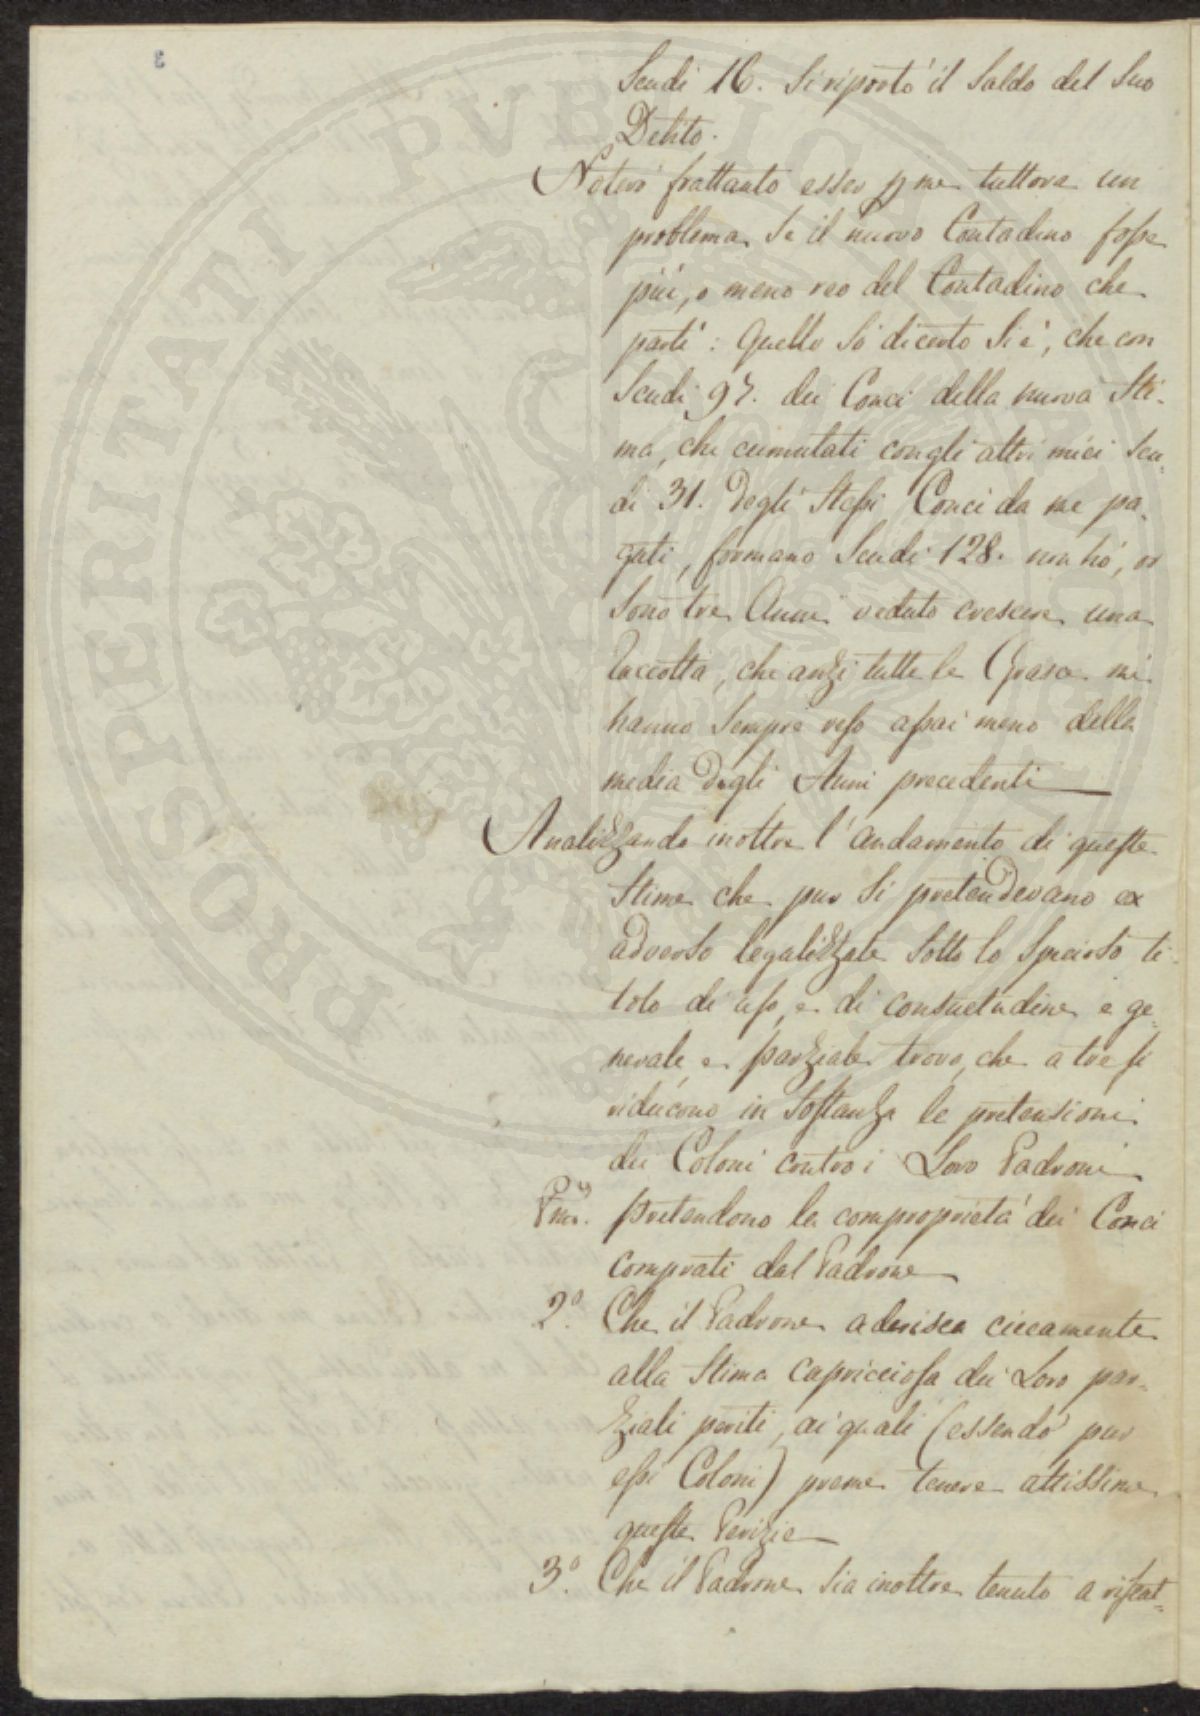 3
Scudi 16. Si riportò il Saldo del Suo
Debito.
Noterò frattanto esser p me tuttora un
problema Se il nuovo Contadino fosse
più, o meno reo del Contadino che
partì: Quello Sò di certo Si è, che con
Scudi 97. dei Conci della nuova Sti-
ma, che cumulati congli altri miei Scu-
di 31. degli Stessi Conci da me pa-
gati, formano Scudi 128. non hò, or
Sono tre Anni veduto crescere una
Raccolta, che anzi tutte le Grasce mi
hanno Sempre reso assai meno della
media degli Anni precedenti
Analizzando inoltre l'andamento di queste
Stime che pur Si pretendevano ex
adverso legalizzate Sotto lo Specioso ti-
tolo di uso, e di consuetudine e ge-
nerale, e parziale trovo, che a tre si
riducono in Sostanza le pretensioni
dei Coloni contro i Loro Padroni
Pmo. pretendono la comproprietà dei Conci
comprati dal Padrone
2º. Che il Padrone aderisca ciecamente
alla Stima capricciosa dei Loro par-
ziali periti, ai quali (essendo pur
essi Coloni) preme tenere altissime
queste Perizie
3º. Che il Padrone Sia inoltre tenuto a riscat-
PROSPERITATI PVBLICAE